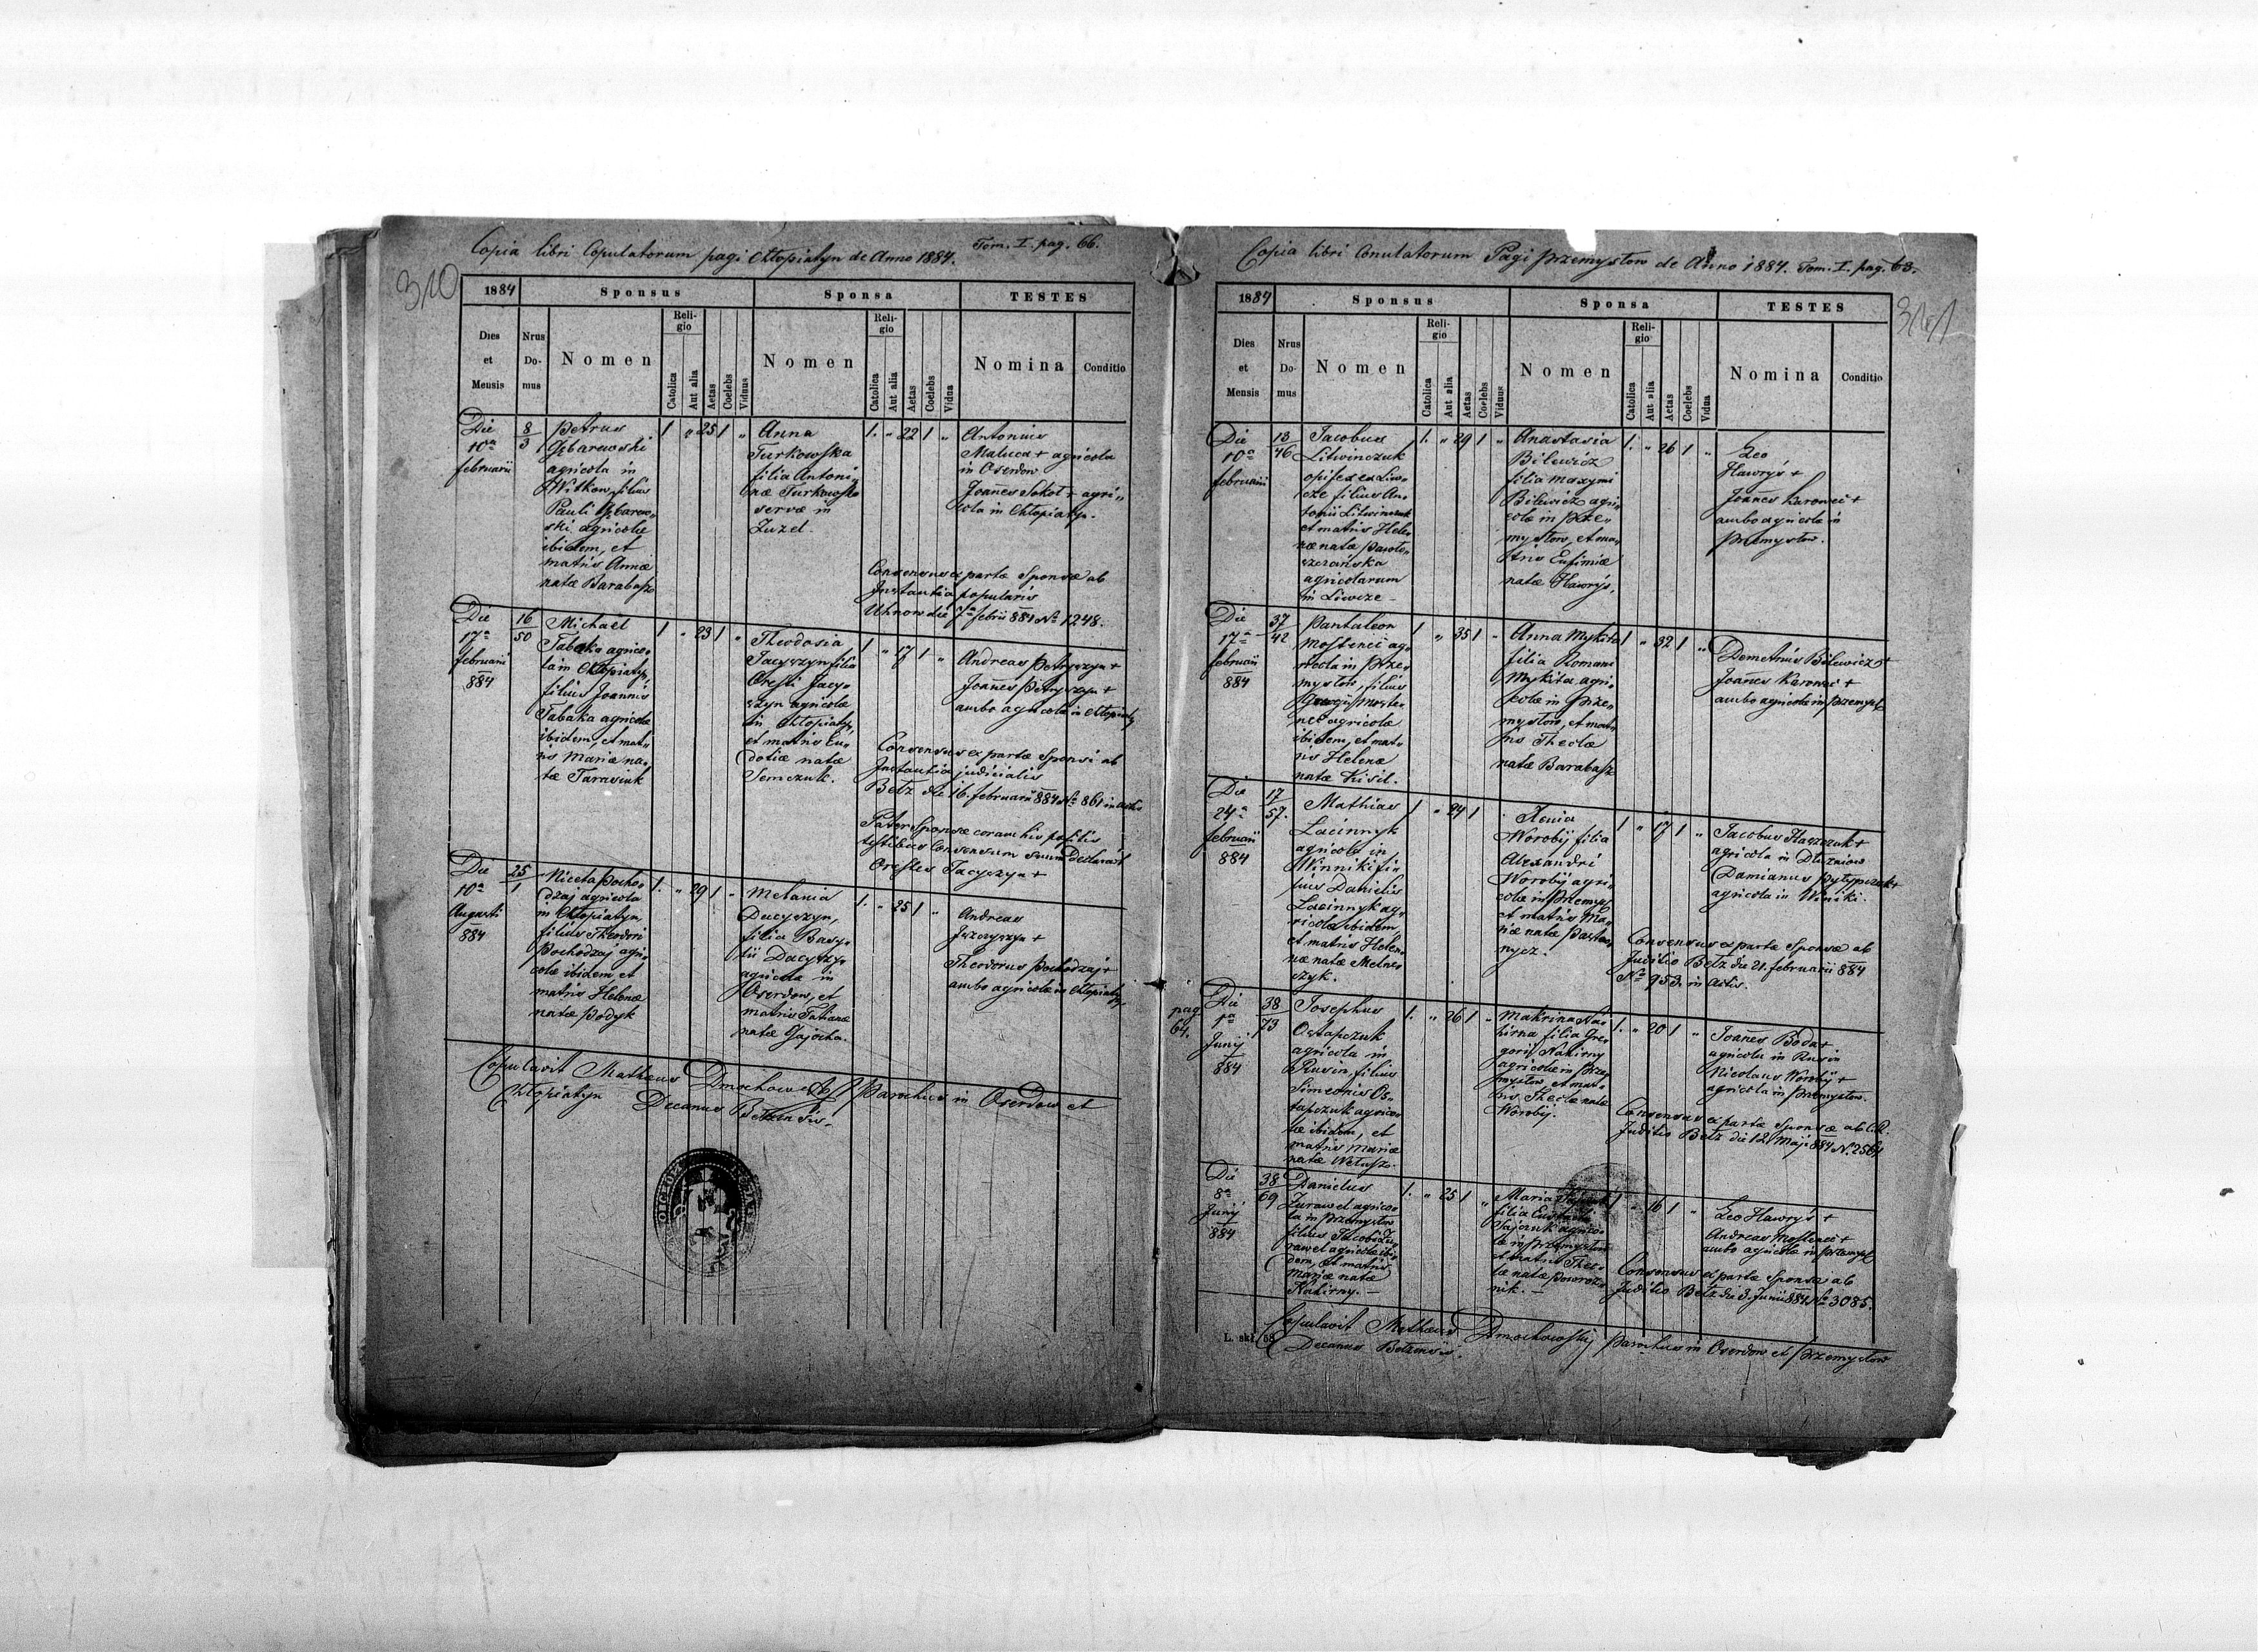 Copia libri Copulatorum pagi Chłopiatyn de Anno 1884. Tom. I. pag. 66.
310
1884 Sponsus Sponsa TESTES
Dies et Mensis
Nrus Domus
Nomen
Religio
Catolica
Aut alia
Aetas
Coelebs
Viduus
Nomen
Religio
Catolica
Aut alia
Aetas
Coelebs
Vidua
Nomina
Conditio
Die
10a
februarii
8
3
Petrus
agricola in
Witkow, filius
Pauli
ski agricolæ
ibidem, et
matris Annæ
natæ Barabasz
1 " 25 1 "
Anna
Turkowska
filia Antoni-
næ Turkowska
servæ in
Żużel.
1. " 22 1 "
Antonius
Maluca + agricola
in Oserdow
Joannes Sokol + agri-
cola in Chłopiatyn.
Consensus ex parte Sponsæ ab
Instantia popularis
Uhnow die 7a febrii 884 No 1248.
Die
17a
februarii
884
16
50
Michael
Tabaka agrico-
la in Chłopiatyn,
filius Joannis
Tabaka agricolæ
ibidem, et mat-
ris Mariæ na-
tæ Tarasiuk
1 " 23 1 "
Theodosia
Jacyszyn filia
Oresti Jacy-
szyn agricolæ
in Chłopiatyn,
et matris Eu-
dotiæ natæ
Semczuk.
1 " 17 1 "
Andreas Petryszyn +
Joannes Petryszyn +
ambo agricolæ in Chłopiatyn
Consensus ex parte Sponsi ab
Instantia judicialis
Bełz die 16. februarii 884 No 861 in actis
Pater Sponsæ coram his positis
testibus Consensum suum declaravit
Orestes Jacyszyn +
Die
10a
Augusti
884
25
1
Niceta Pocho-
dzaj agricola
in Chłopiatyn,
filius Theodori
Pochodzaj agri-
colæ ibidem et
matris Helenæ
natæ Podyk
1. " 29 1 "
Melania
Dacyszyn,
filia Basy-
lii Dacyszyn
agricolæ in
Oserdow, et
matris Tatianæ
natæ Gajocha.
1. " 25 1 "
Andreas
Jszczyszyn +
Theodorus Pochodzaj +
ambo agricolæ in Chłopiatyn
Copulavit Mathæus Dmochowski Parochus in Oserdow et
Chłopiatyn Decanus Bełzensis.
Copia libri Copulatorum Pagi Przemysłow de Anno 1884. Tom. I. pag. 63.
311
1884 Sponsus Sponsa TESTES
Dies et Mensis
Nrus Domus
Nomen
Religio
Catolica
Aut alia
Aetas
Coelebs
Viduus
Nomen
Religio
Catolica
Aut alia
Aetas
Coelebs
Vidua
Nomina
Conditio
Die
10a
februarii
13
46
Jacobus
Litwinczuk
opifex ex Liw-
cze filius An-
tonii Litwinczuk
et matris Hele-
næ natæ
agricolarum
in Liwcze -
1. " 29 1 "
Anastasia
Bilewicz
filia Maxymi
Bilewicz agri-
colæ in Prze-
mysłow, et ma-
tris Eufimiæ
natæ Hawryś.
1. " 26 1 "
Leo
Hawryś +
Joannes Karoweć +
ambo agricolæ in
Przemysłow.
Die
17a
februarii
884
37
42
Pantaleon
Mosteneć ag-
ricola in Prze-
mysłow, filius
Georgii Moste-
neć agricolæ
ibidem, et mat-
ris Helenæ
natæ Kisil.
1 " 35 1 "
Anna Mykita
filia Romani
Mykita agri-
colæ in Prze-
mysłow, et mat-
ris Theclæ
natæ Barabasz
1 " 32 1 "
Demetrius Bilewicz +
Joannes Karoweć +
ambo agricolæ in Przemysł.
Die
24a
februarii
884
17
57.
Mathias
Lacinnyk
agricola in
Winniki fi-
lius Danielis
Lacinnyk ag-
ricolæ ibidem,
et matris Hele-
næ natæ Melni-
czyk.
1 " 24 1
Xenia
Worobij filia
Alexandri
Worobij agri-
colæ in Przemysł.
et matris Ma-
riæ natæ
1 " 17 1 "
Jacobus +
agricola in Dłużniow
Damianus Pyłypczuk +
agricola in Winiki.
Consensus ex parte Sponsæ ab
Juditio Bełz die 21. februarii 884
No 953. in Actis.
pag.
64.
Die
1a
Junij
884
38
73
Josephus
Ostapczuk
agricola in
Rusin, filius
Simeonis Os-
tapczuk agrico-
læ ibidem, et
matris Mariæ
natæ
1. " 26 1 "
Makrina Na-
hirna filia Gre-
gorii Nahirny
agricolæ in Prze-
mysłow et mat-
ris Theclæ natæ
Worobij.
1. " 20 1 "
Joannes Boda +
agricola in Rusin
Nicolaus Worobij +
agricola in Przemysłow.
Consensus ex parte Sponsæ ab C.R.
Juditio Bełz die 12. Maji 884 N. 2564
Die
8a
Junij
884
38
69
Danielus
Żurawel agrico-
la in Przemysłow
filius Jacobi Żu-
rawel agricolæ ibi-
dem, et matris
Mariæ natæ
Nahirny. -
1. " 25 1 "
Maria
filia
Sajczuk agrico-
læ in Przemysłow
et matris Thec-
læ natæ Powroz-
nik. -
1 " 16 1 "
Leo Hawryś +
Andreas Mosteneć +
ambo agricolæ in Przemysł.
Consensus ex parte Sponsæ ab
Juditio Bełz die 3. Junii 884 No 3085.
L. skł. 58
Copulavit Mathæus Dmochowskij Parochus in Oserdow et Przemysłow
Decanus Bełzensis.